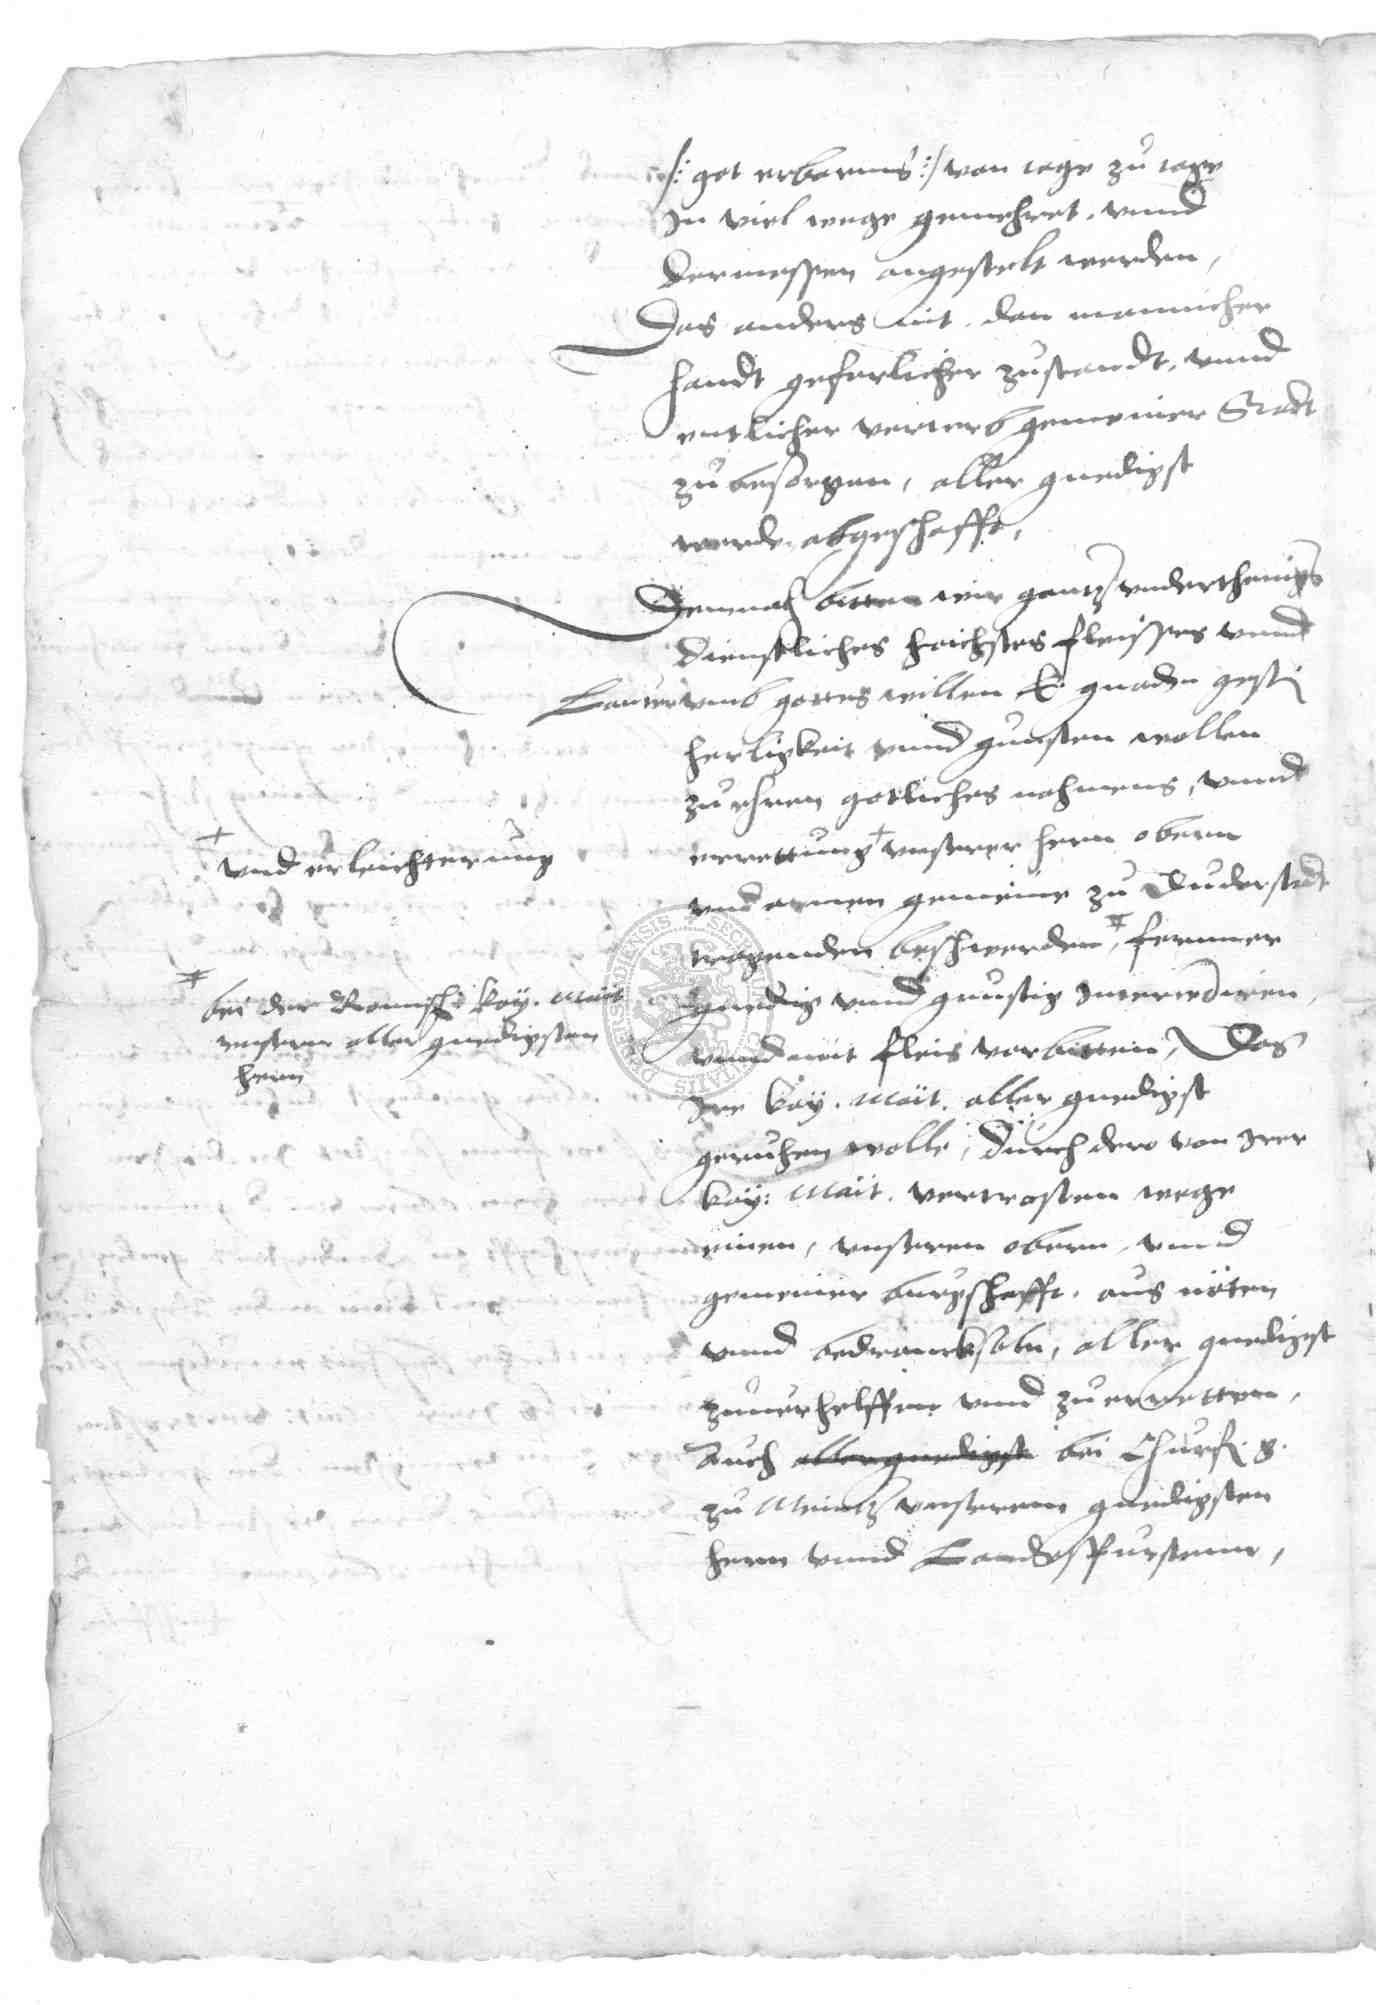 /: got erbarms :/ von tage zu tage
In viel wege gemehret, vnnd
dermassen angestelt werden,
Das anders nit, dan mannicher
handt geferlicher zustandt, vnnd
entlicher verterb gemeiner Stadt
zubesorgen, aller gnedigst
werde abgeschafft,
Demnach bitten wir gantz vnderthenigs
dienstliches hoichstes fleisses vnnd
Lauter vmb gottes willen E. gnaden gest.
herligkeit vnnd gunsten wollen
zu ehren gotliches nahmens, vnnd
errettung + vnserer hern obern
vnd armen gemeine zu Duderstadt
tragenden beschwerden ⌗, fernner
gnedig vnnd gunstig Intercediren,
vnnd mit fleis vorbitten, Das
Ire kay. Mait. aller gnedigst
geruhen wolle, durch dero von Irer
kay: Mait. vertrosten wege
einen, vnseren obern, vnnd
gemeiner burgschafft, aus nöten
vnnd bedrancksaln, aller gnedigst
zuuerhelffen vnnd zu erretten,
Auch allergnedigst bei Churf. g.
zu Meintz vnserem gnedigsten
hern vnnd Landesfursten,
+ vnd erleichterung
⌗ bei der Romisch. kay. Mait
vnserm aller gnedigsten
hern